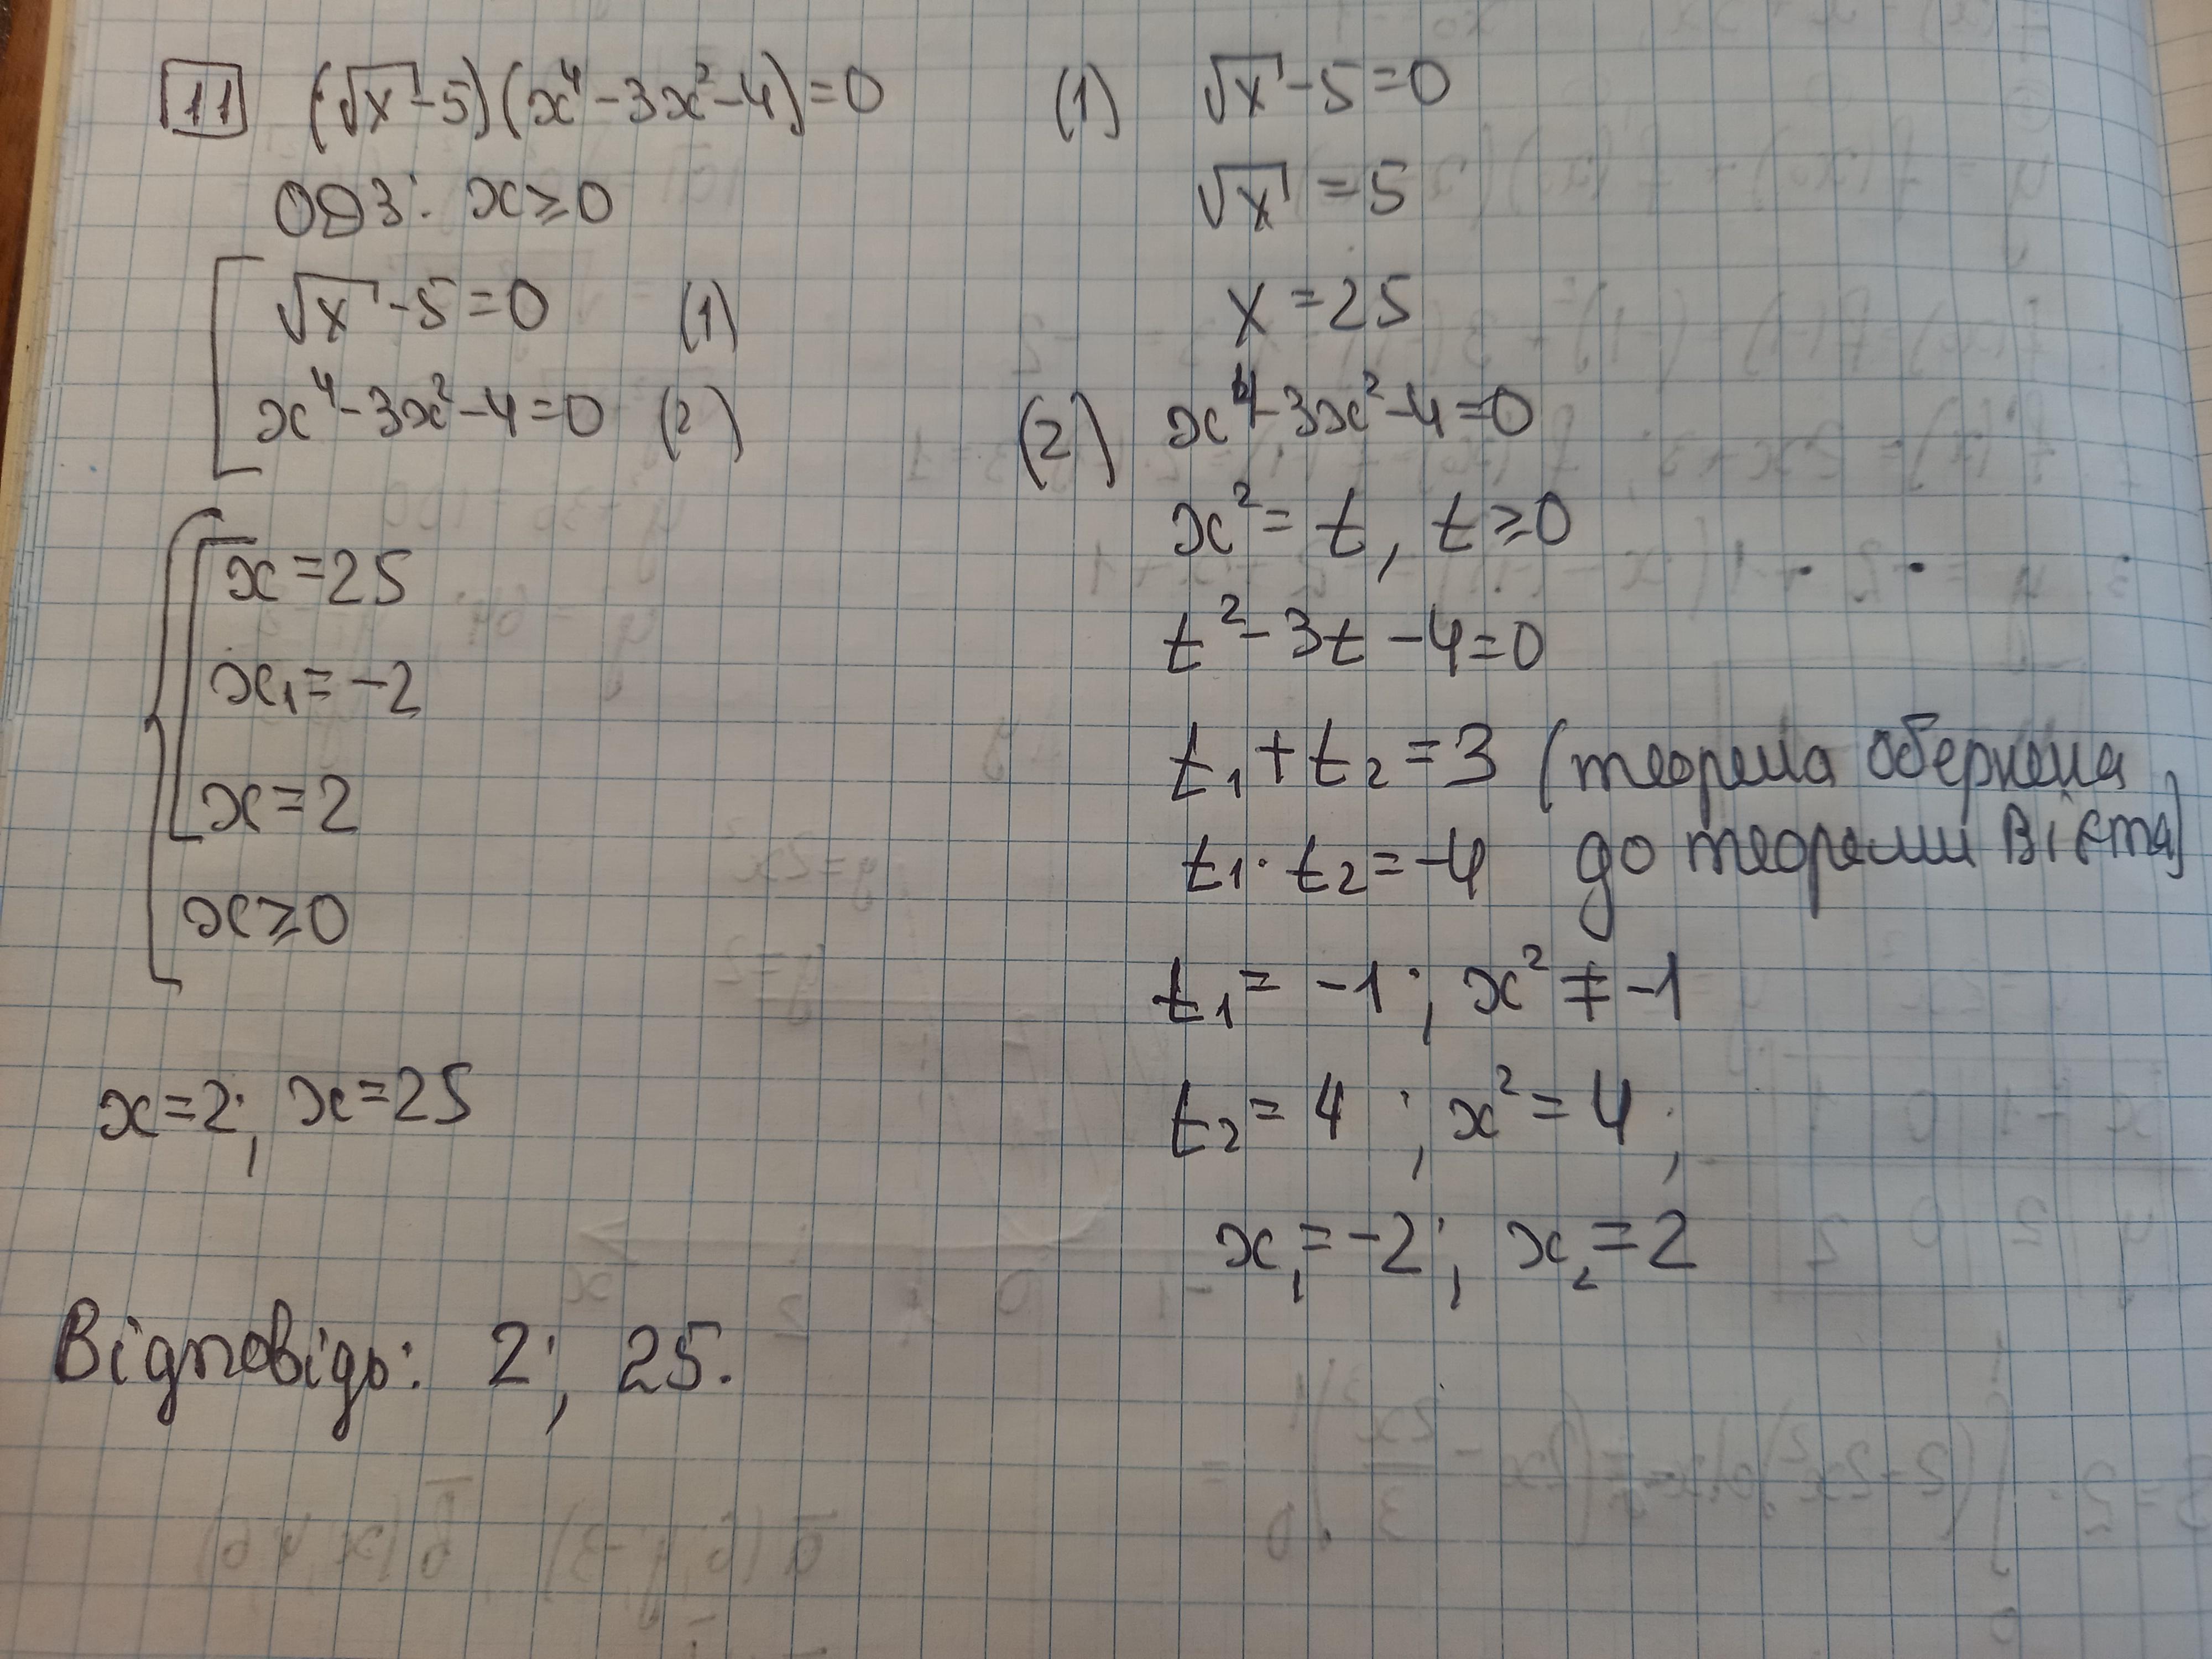 11 (√x - 5)(x⁴ - 3x² - 4) = 0
ОДЗ: x ≥ 0
√x - 5 = 0 (1)
x⁴ - 3x² - 4 = 0 (2)
x = 25
x₁ = -2
x = 2
x ≥ 0
x = 2; x = 25
Відповідь: 2; 25.
(1) √x - 5 = 0
√x = 5
x = 25
(2) x⁴ - 3x² - 4 = 0
x² = t, t ≥ 0
t² - 3t - 4 = 0
t₁ + t₂ = 3 (теорема обернена
t₁ · t₂ = -4 до теореми Вієта)
t₁ = -1; x² ≠ -1
t₂ = 4; x² = 4;
x₁ = -2; x₂ = 2